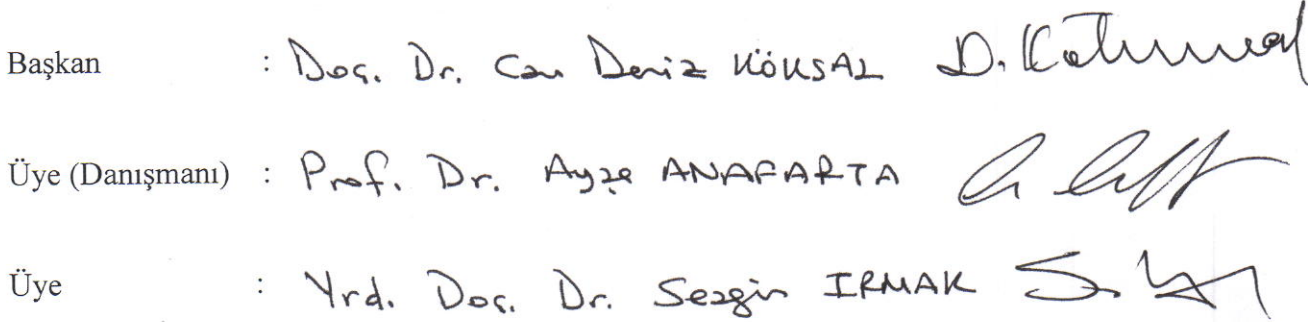 Başkan : Doç. Dr. Can Deniz KÖKSAL
Üye (Danışmanı) : Prof. Dr. Ayşe ANAFARTA
Üye : Yrd. Doç. Dr. Sezgin IRMAK